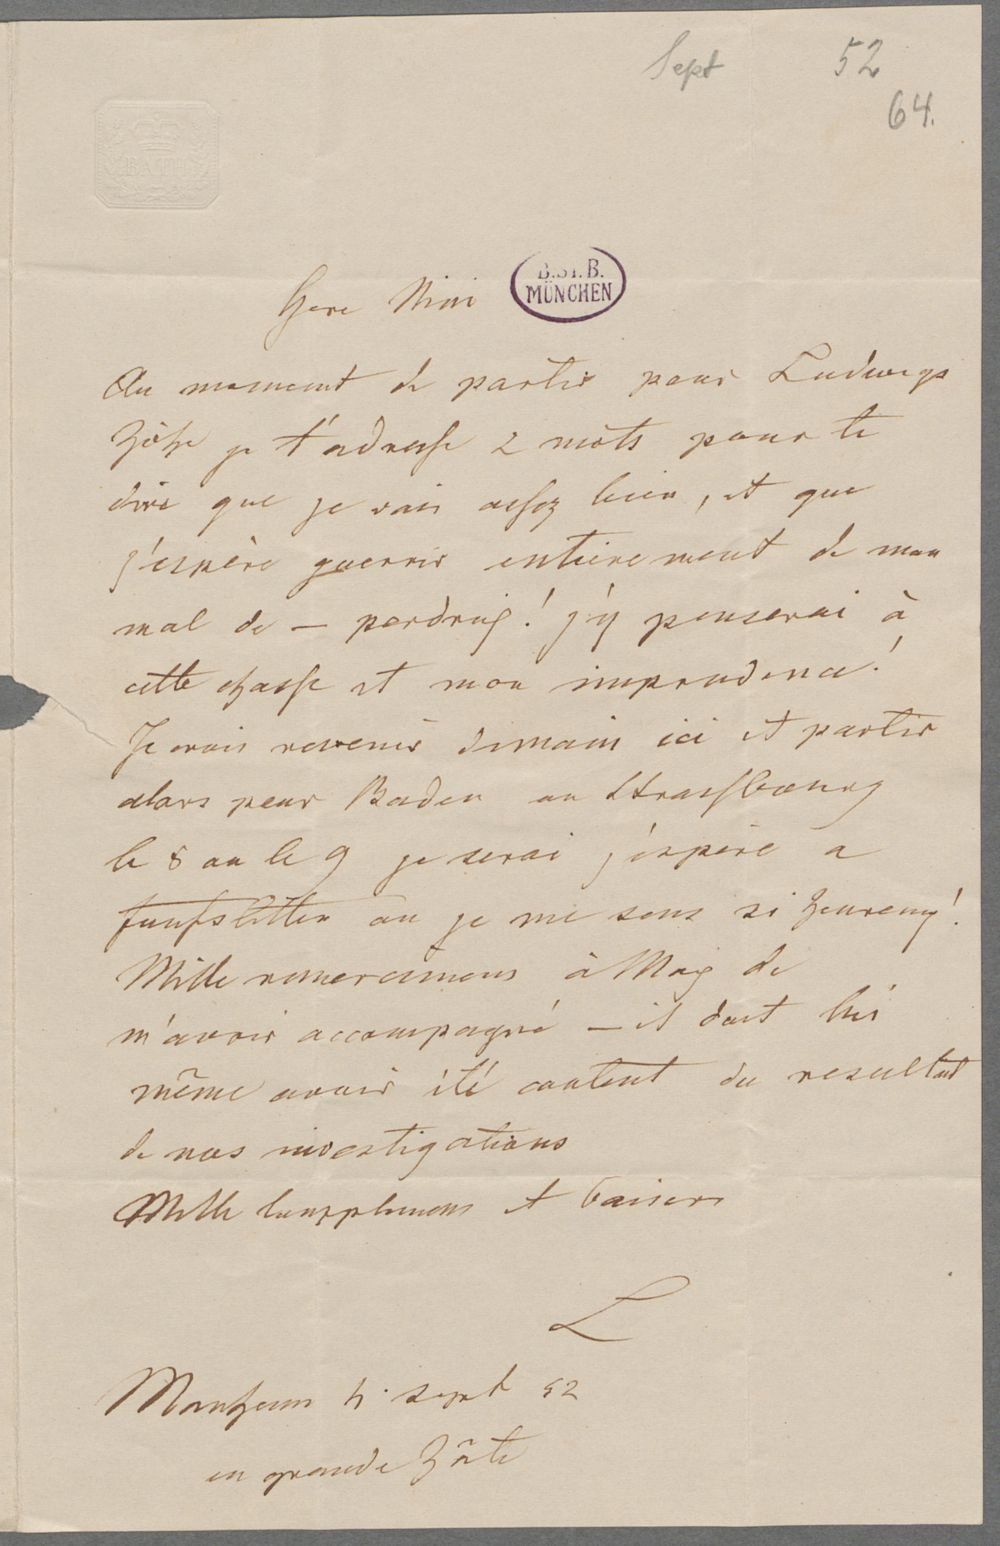 Sept 52
64.
BATH
B.St.B.
MÜNCHEN
Chere Mimi
Au moment de partir pour Ludwigs
höhe je t'adresse 2 mots pour te
dire que je vais assez bien, et que
j'espère guerrir entierement de mon
mal de — perdrix! j'y penserai à
cette chasse et mon imprudence!
Je vais revenir demain ici et partir
alors pour Baden ou Strassbourg
le 8 ou le 9 je serai j'espère a
ou je me sens si heureux!
Mille remerciemens à Max de
m'avoir accompagné — il doit lui
même avoir été content du resultat
de nos investigations
Mille complimens et baisers
L
Manheim 4 sept 52
en grande hâte